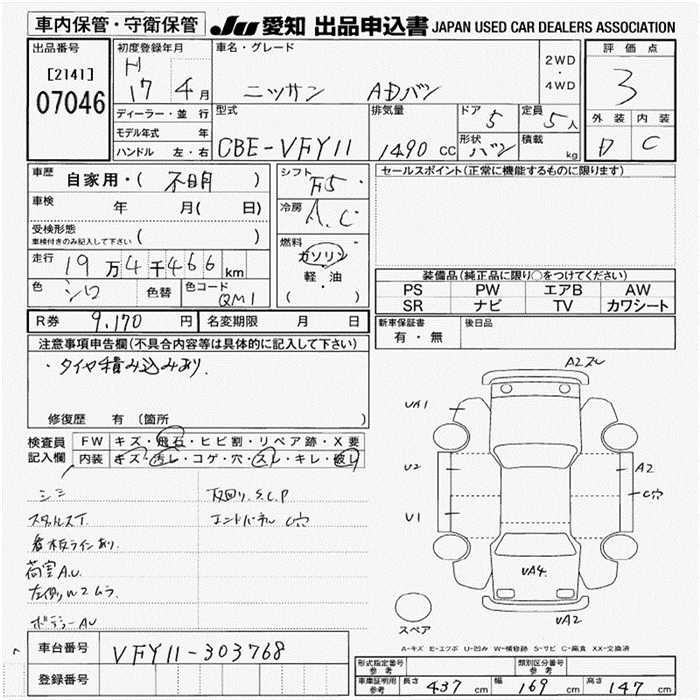 車内保管・守衛保管
JU 愛知 出品申込書 JAPAN USED CAR DEALERS ASSOCIATION
出品番号
[2141]
07046
初度登録年月
H
17 4月
車名・グレード
ニッサン ADバン
2WD
・
4WD
評価点
3
外装 内装
D C
ディーラー・並行
モデル年式 年
ハンドル 左・右
型式
CBE-VFY11
排気量
1490 CC
ドア 5
定員 5人
形状 バン
積載 kg
車歴 自家用・( 不明 )
車検 年 月( 日)
受検形態
車検付きのみ記入して下さい ( )
走行 19万4千466km
色 シロ 色替 色コード QM1
シフト F5
冷房 A.C
燃料
ガソリン
・
軽・油
( )
セールスポイント(正常に機能するものに限ります)
装備品(純正品に限り○をつけてください)
PS PW エアB AW
SR ナビ TV カワシート
R券 9,170 円 名変期限 月 日
新車保証書
有・無
後日品
注意事項申告欄(不具合内容等は具体的に記入して下さい)
・タイヤ積み込みあり.
修復歴 有 (箇所 )
検査員
記入欄
FW キズ・飛石・ヒビ割・リペア跡・X要
内装 キズ・汚レ・コゲ・穴・スレ・キレ・破レ
シミ
スタッドレスT.
看板ラインあり.
荷室A.U.
左側W2ムラ.
ボデーAU
下回り.S.C.P
エンドパネル C穴
A2ズレ
UA1
U2
U1
A2
C穴
UA4.
UA2
スペア
A-キズ E-エクボ U-凹み W-補修跡 S-サビ C-腐食 XX-交換済
車台番号 VFY11-303768
登録番号
形式指定番号
参考
類別区分番号
参考
車庫証明用
参考
長さ 437 cm 幅 169 cm 高さ 147 cm